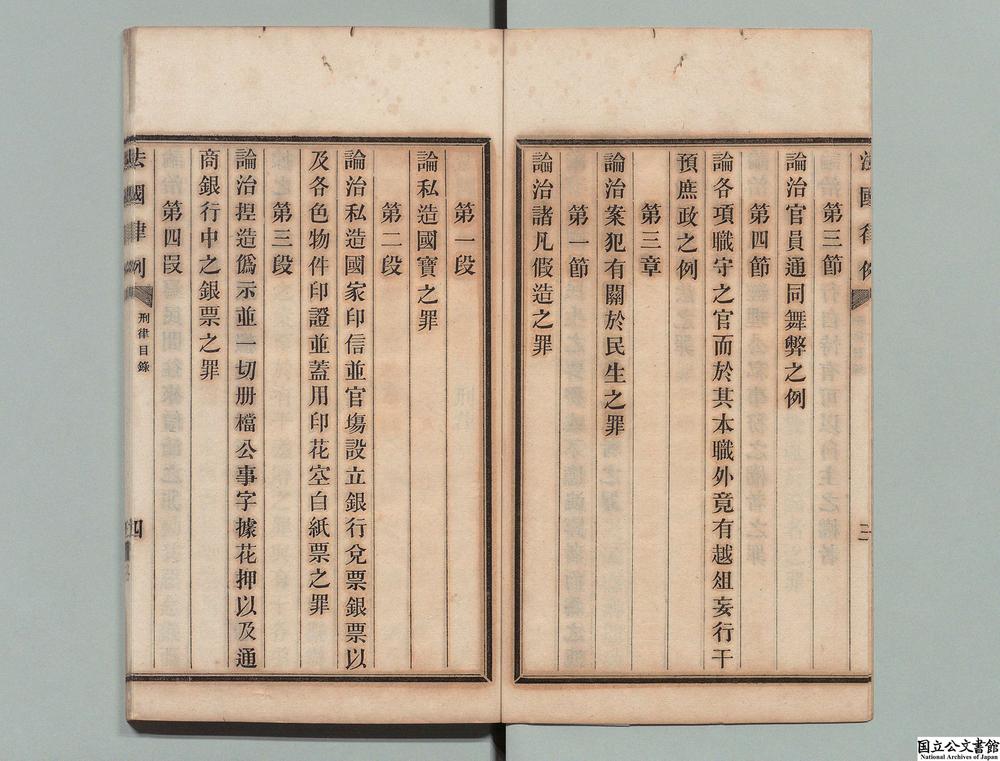 法國律例
三
第三節
論治官員通同舞弊之例
第四節
論各項職守之官而於其本職外竟有越俎妄行干
預庶政之例
第三章
論治案犯有關於民生之罪
第一節
論治諸凡假造之罪
第一段
論私造國寶之罪
第二段
論治私造國家印信並官塲設立銀行兌票銀票以
及各色物件印證並蓋用印花空白紙票之罪
第三段
論治捏造僞示並一切册檔公事字據花押以及通
商銀行中之銀票之罪
第四段
法國律例
刑律目錄
四
国立公文書館
National Archives of Japan